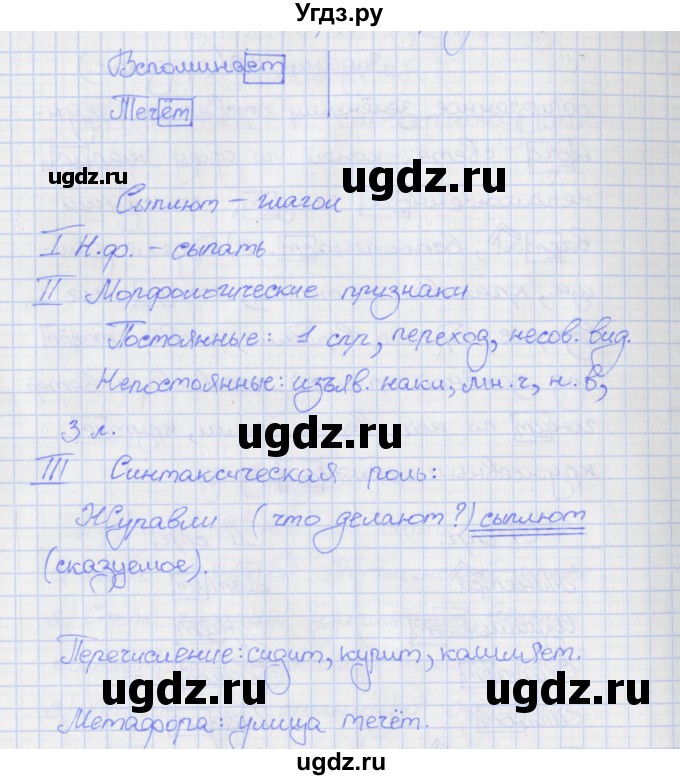 Угдз.ру
Вспоминает
Течёт
ugdz.ru ugdz.ru
Сыплют – глагол
ugdz.ru
I Н.ф. – сыпать
II Морфологические признаки
Постоянные: 1 спр, переход, несов. вид.
Непостоянные: изъяв. накл, мн.ч, н.в,
3 л.
ugdz.ru
ugdz.ru
III Синтаксическая роль:
Журавли (что делают?) сыплют
(сказуемое).
Перечисление: сидит, курит, кашляет.
ugdz.ru ugdz.ru ugdz.ru
Метафора: улица течёт.
ugdz.ru